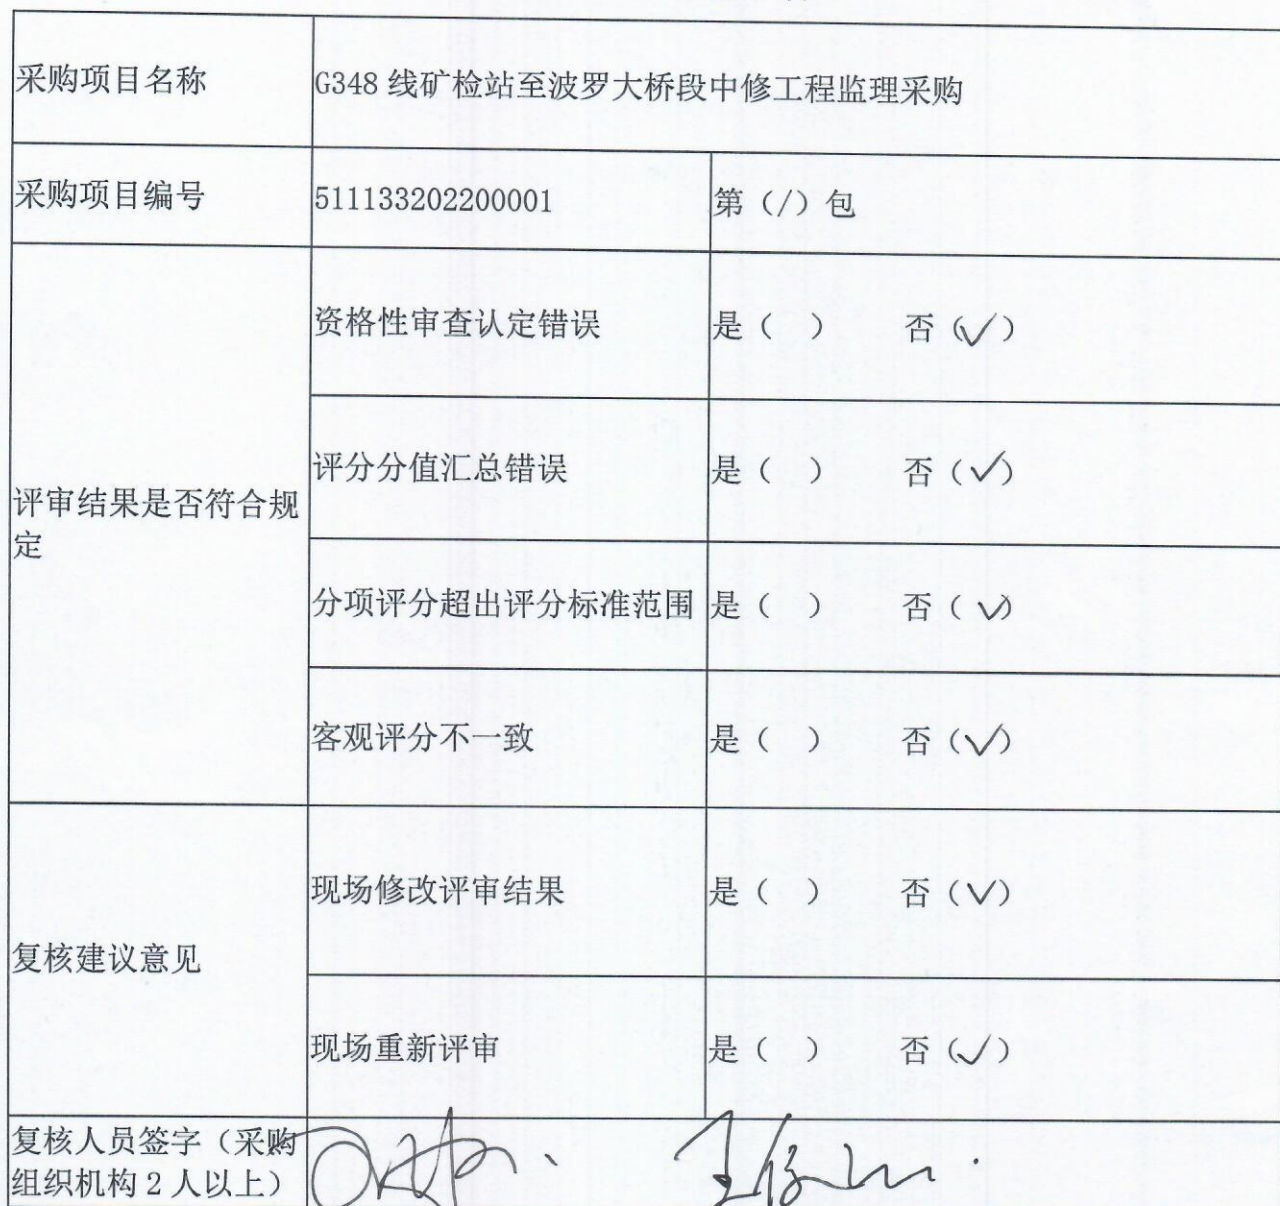 采购项目名称
G348 线矿检站至波罗大桥段中修工程监理采购
采购项目编号
511133202200001
第（/）包
评审结果是否符合规
定
资格性审查认定错误
是（ ） 否（✓）
评分分值汇总错误
是（ ） 否（✓）
分项评分超出评分标准范围
是（ ） 否（✓）
客观评分不一致
是（ ） 否（✓）
复核建议意见
现场修改评审结果
是（ ） 否（✓）
现场重新评审
是（ ） 否（✓）
复核人员签字（采购
组织机构 2 人以上）